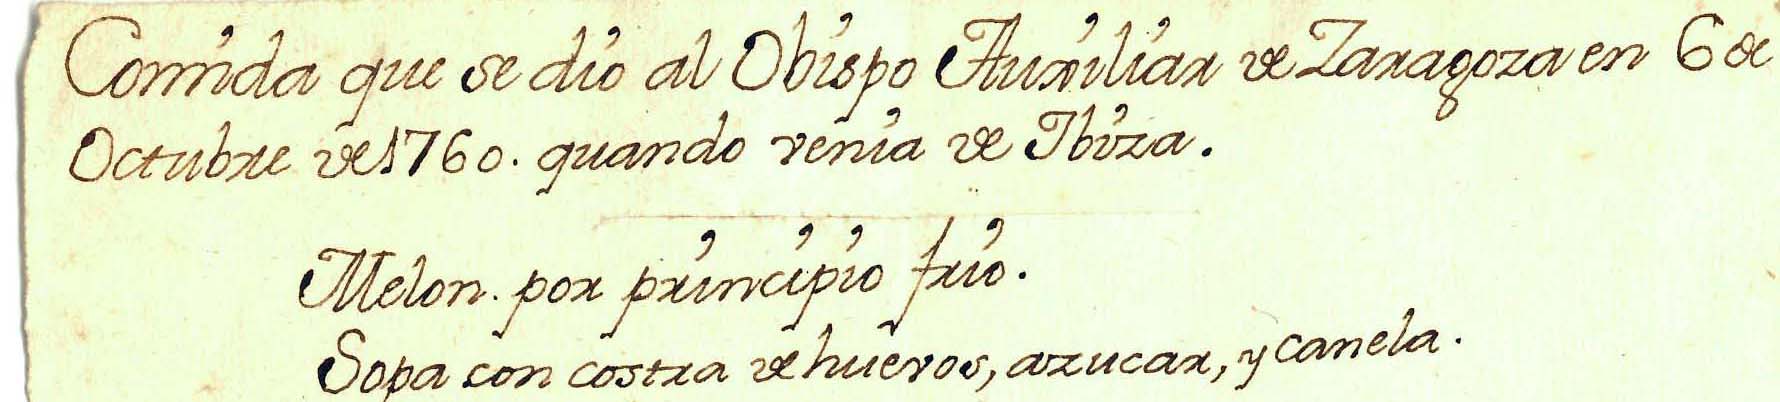 Comida que se dió al Obispo Auxiliar de Zaragoza en 6 de
Octubre de 1760. quando venia de Ibiza.
Melon. por principio frio.
Sopa con costra de huevos, azucar, y canela.